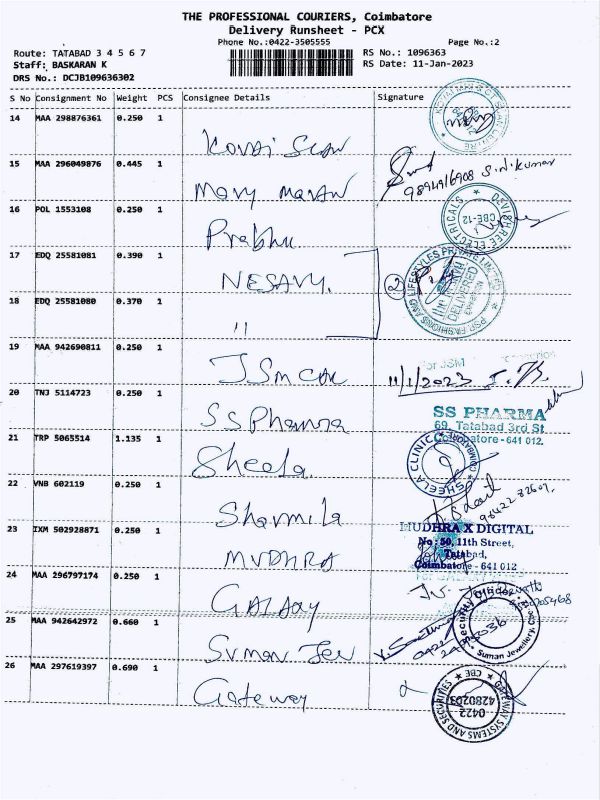 THE PROFESSIONAL COURIERS, Coimbatore
Delivery Runsheet - PCX
Phone No.:0422-3505555 Page No.:2
Route: TATABAD 3 4 5 6 7 RS No.: 1096363
Staff: BASKARAN K RS Date: 11-Jan-2023
DRS No.: DCJB109636302
S No Consignment No Weight PCS Consignee Details Signature
14 MAA 298876361 0.250 1
Kovai Scan
15 MAA 296049876 0.445 1
9894916908 S.N.Kumar
Mary Maran
16 POL 1553108 0.250 1
DEVI SHREE ELECTRICALS CBE-12
Prabhu
17 EDQ 25581081 0.390 1
NESAVU.
2 PSP FASHIONS AND LIFESTYLES PRIVATE LIMITED DELIVERED
18 EDQ 25581080 0.370 1
"
19 MAA 942690811 0.250 1
For JSM
JSM
11/1/2023
20 TNJ 5114723 0.250 1
SS PHARMA
69, Tatabad 3rd St
Coimbatore - 641 012.
SS Pharma
21 TRP 5065514 1.135 1
SHEELA CLINIC COIMBATORE
Sheela
22 VNB 602119 0.250 1
Sharmila
23 IXM 502928871 0.250 1
MUDHRA X DIGITAL
No : 50, 11th Street,
Tatabad,
Coimbatore - 641 012
MUDHRA
24 MAA 296797174 0.250 1
GALAXY
25 MAA 942642972 0.660 1
Security Officer Suman Jewellery
Suman Jew
26 MAA 297619397 0.690 1
Gateway
GATEWAY SYSTEMS AND SECURITIES CBE 0422 4280203